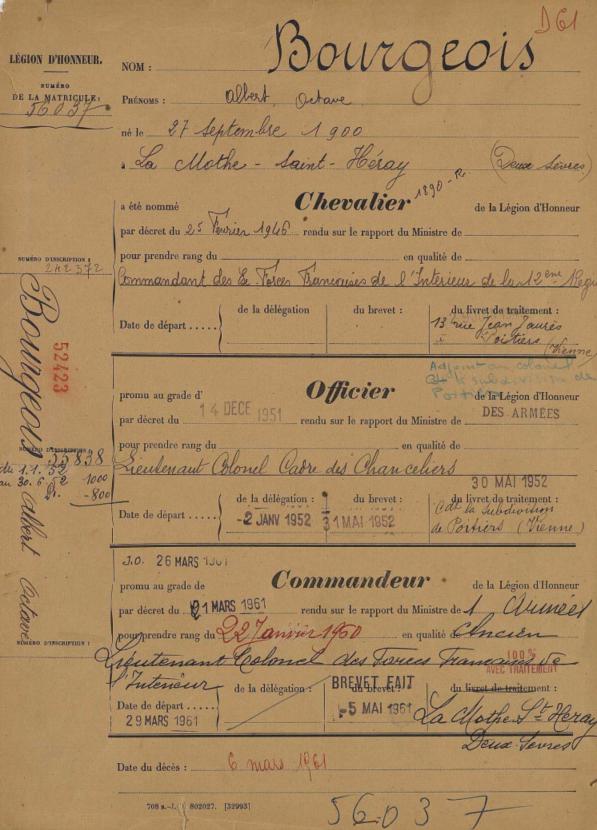 D61
LÉGION D'HONNEUR.
NUMÉRO
DE LA MATRICULE:
56037
NOM : Bourgeois
PRÉNOMS : Albert, Octave.
né le 27 Septembre 1900
à La Mothe-Saint-Héray (Deux Sèvres)
1890-R.
a été nommé Chevalier de la Légion d'Honneur
par décret du 25 Février 1946 rendu sur le rapport du Ministre de
pour prendre rang du en qualité de
NUMÉRO D'INSCRIPTION :
242372
Commandant des Forces Françaises de l'Intérieur de la 12ème
de la délégation du brevet : du livret de traitement :
Date de départ
13 rue Jean Jaurès
à Poitiers
(Vienne)
Adjoint au colonel
Cdt la subdivision de
Poitiers
Bourgeois Albert Octave
52423
promu au grade d' Officier de la Légion d'Honneur
par décret du 14 DECE 1951 rendu sur le rapport du Ministre de DES ARMÉES
pour prendre rang du en qualité de
NUMÉRO D'INSCRIPTION
35838
du 1.1.52 1000
au 30.6.52
-800
Lieutenant Colonel Cadre des Chanceliers
30 MAI 1952
de la délégation : du brevet : du livret de traitement :
Date de départ -2 JANV 1952 31 MAI 1952
Cdt la Subdivision
de Poitiers (Vienne)
J.O. 26 MARS 1961
promu au grade de Commandeur de la Légion d'Honneur
par décret du 21 MARS 1961 rendu sur le rapport du Ministre des Armées
pour prendre rang du 22 Janvier 1960 en qualité d'Ancien
NUMÉRO D'INSCRIPTION :
Lieutenant Colonel des Forces Françaises de
l'Intérieur
100%
AVEC TRAITEMENT
de la délégation : du brevet : du livret de traitement :
BREVET FAIT
Date de départ
29 MARS 1961 -5 MAI 1961
La Mothe St Héray
Deux-Sèvres
Date du décès : 6 mars 1961
708 802027. [32993]
56037